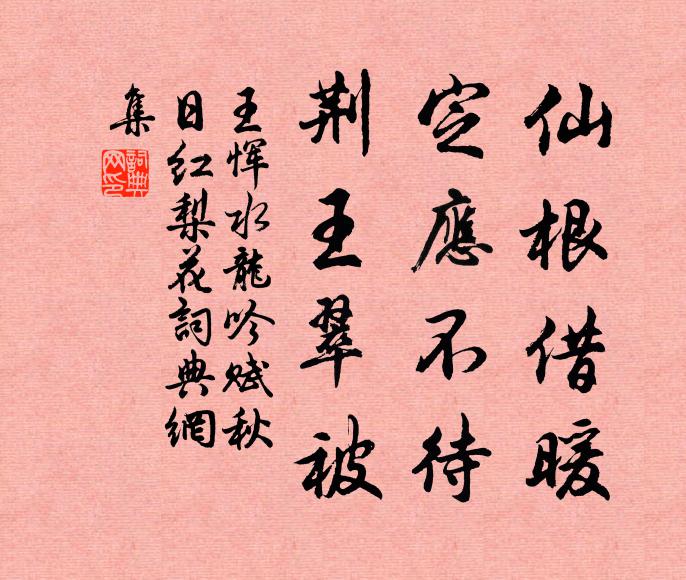 仙根借暖
定應不待
荆王翠被
王惲水龍吟賦秋
日红梨花詞典網
集
詞典網印